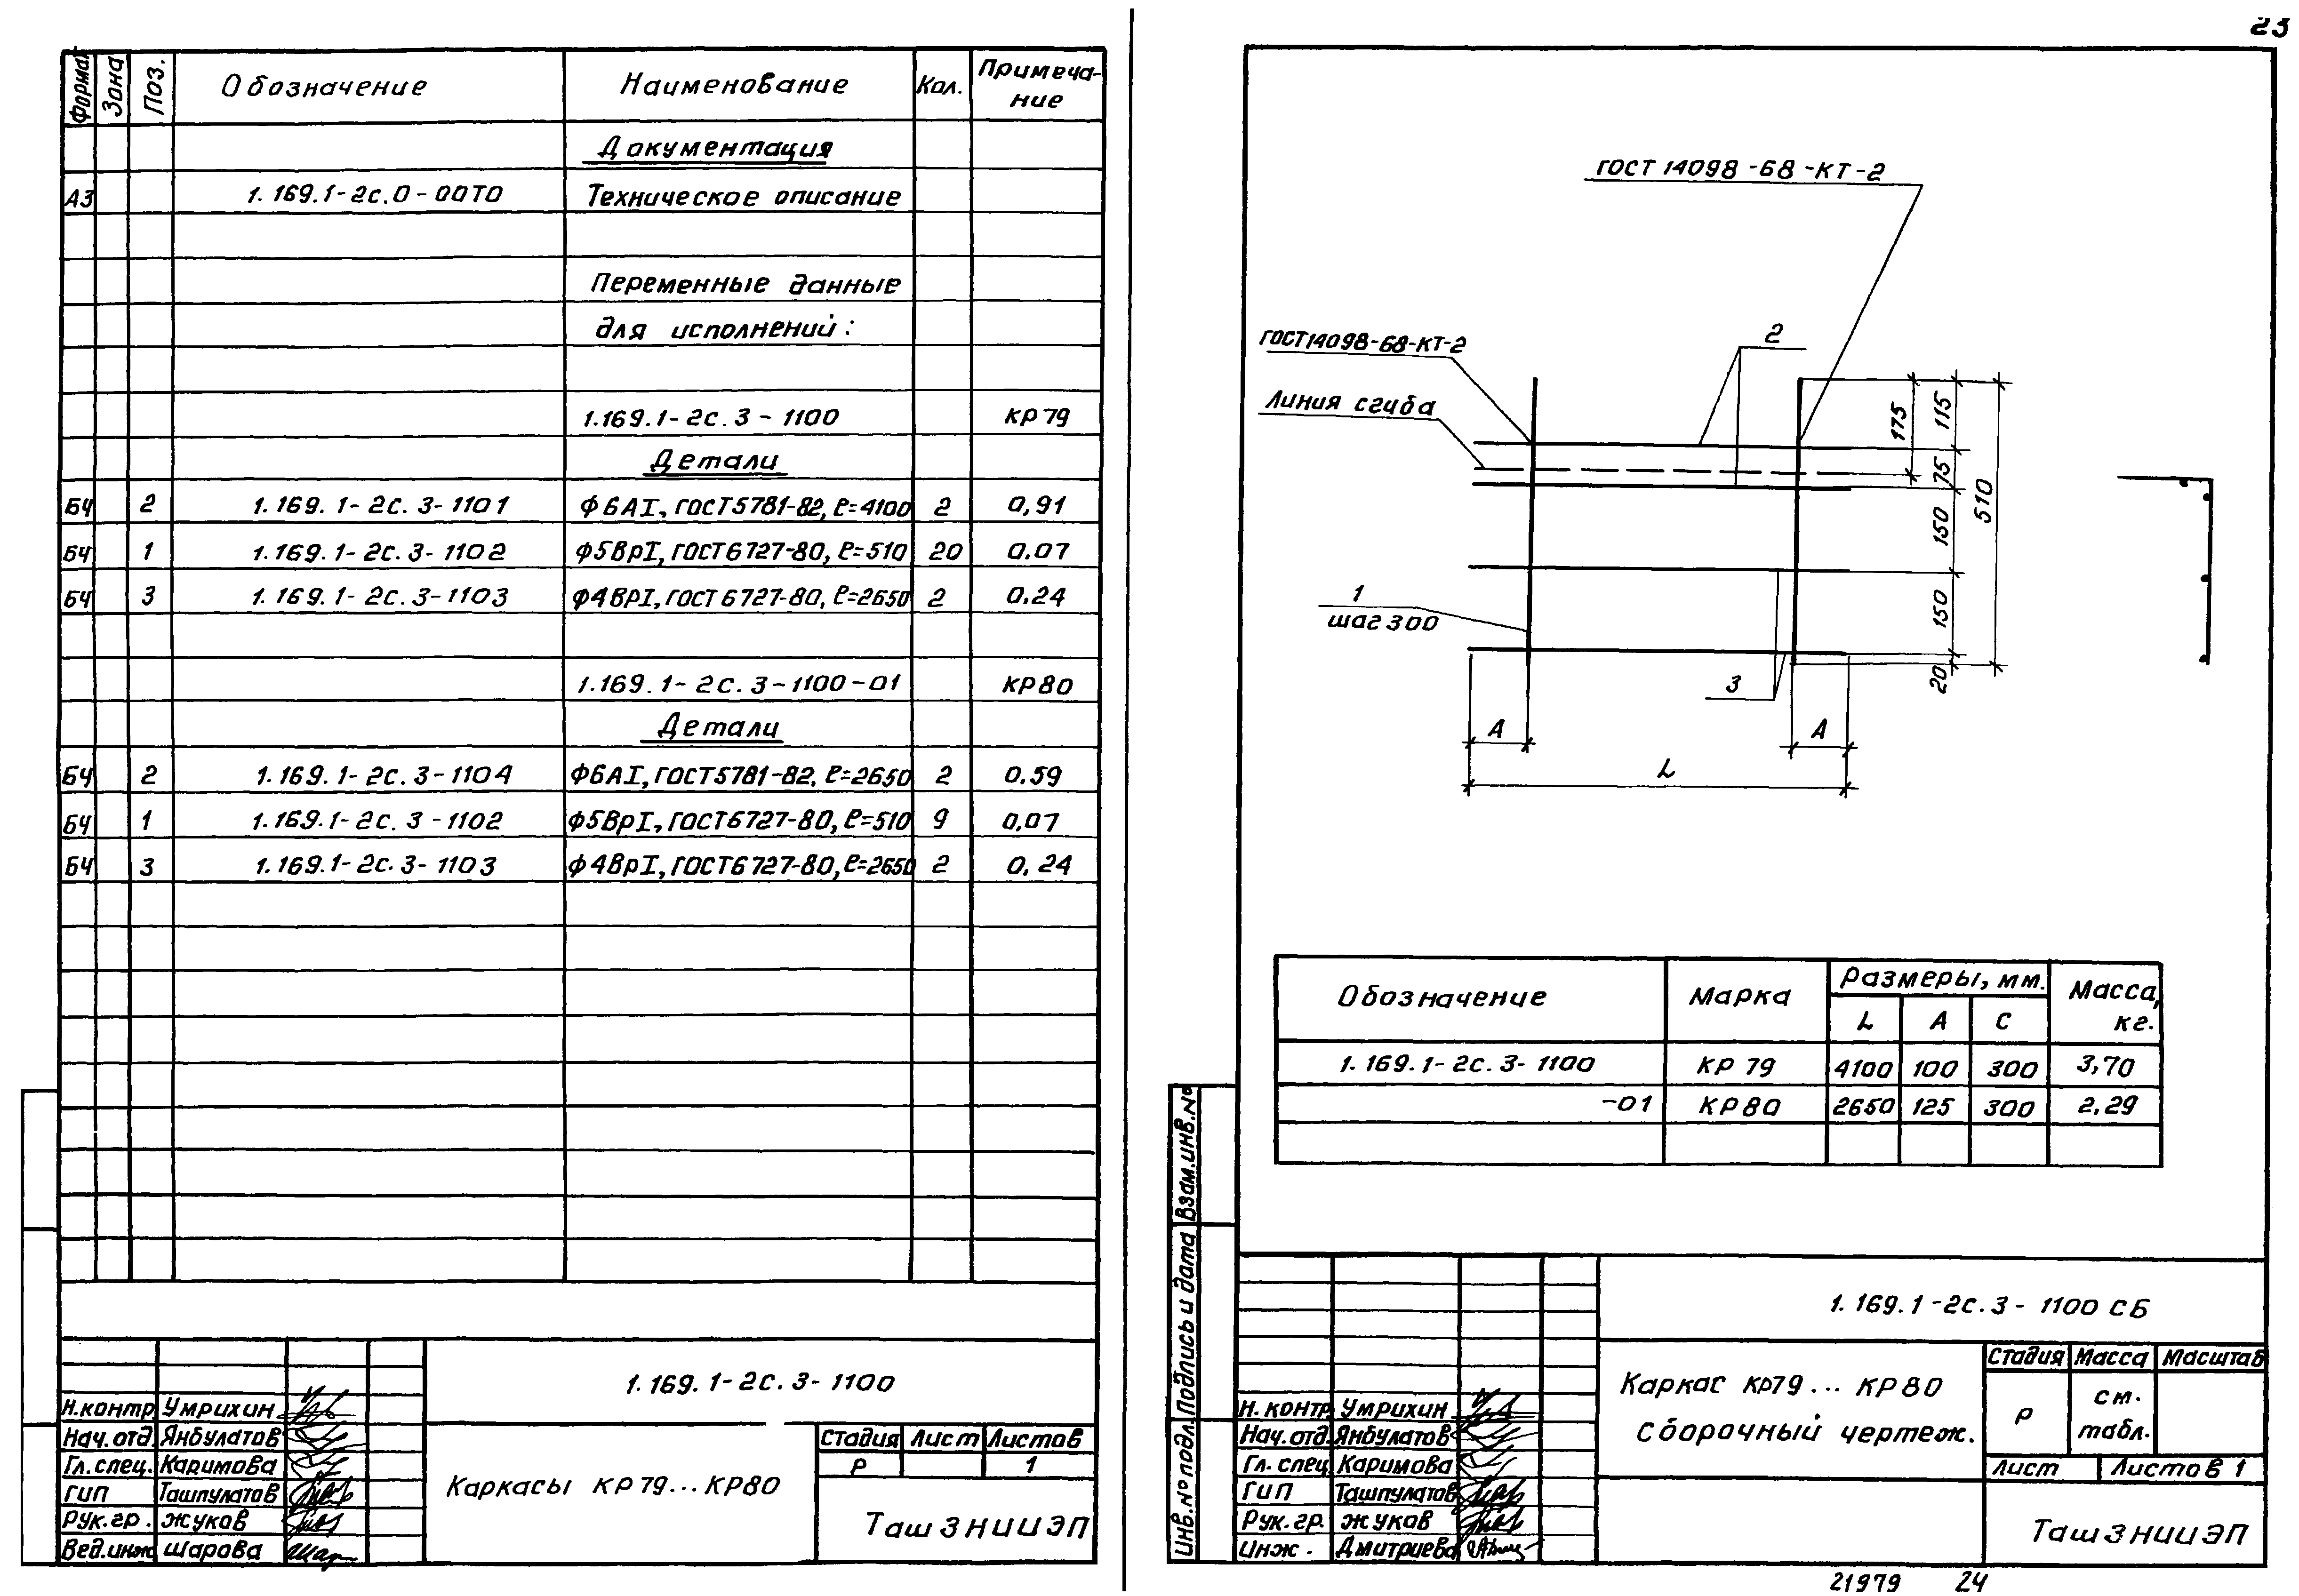 23
Формат Зона Поз. Обозначение Наименование Кол. Примеча-
ние
Документация
А3 1.169.1-2с.0-00Т0 Техническое описание
Переменные данные
для исполнений:
1.169.1-2с.3-1100 КР79
Детали
БЧ 2 1.169.1-2с.3-1101 Ф6АI, ГОСТ5781-82, ℓ=4100 2 0,91
БЧ 1 1.169.1-2с.3-1102 Ф5ВрI, ГОСТ6727-80, ℓ=510 20 0.07
БЧ 3 1.169.1-2с.3-1103 Ф4ВРI, ГОСТ6727-80, ℓ=2650 2 0.24
1.169.1-2с.3-1100-01 КР80
Детали
БЧ 2 1.169.1-2с.3-1104 Ф6АI, ГОСТ5781-82, ℓ=2650 2 0.59
БЧ 1 1.169.1-2с.3-1102 Ф5ВрI, ГОСТ6727-80, ℓ=510 9 0,07
БЧ 3 1.169.1-2с.3-1103 Ф4ВрI, ГОСТ6727-80, ℓ=2650 2 0,24
1.169.1-2с.3-1100
Н.контр Умрихин
Нач.отд. Янбулатов
Гл.спец. Каримова
ГИП Ташпулатов
Рук.гр. Жуков
Вед.инж Шарова
Каркасы КР79...КР80
Стадия Лист Листов
Р 1
ТашЗНИИЭП
ГОСТ 14098-68-КТ-2
ГОСТ14098-68-КТ-2
2
Линия сгиба
175
115
75
150
510
150
20
1
шаг 300
3
А
А
L
Обозначение Марка Размеры, мм. Масса,
кг.
L А С
1.169.1-2с.3-1100 КР 79 4100 100 300 3,70
-01 КР80 2650 125 300 2,29
Инв.№подл. Подпись и дата Взам.инв.№
1.169.1-2с.3-1100 СБ
Н.контр. Умрихин
Нач.отд. Янбулатов
Гл.спец Каримова
ГИП Ташпулатов
Рук.гр. Жуков
Инж. Дмитриева
Каркас КР79...КР80
Сборочный чертеж.
Стадия Масса Масштаб
Р см.
табл.
Лист Листов 1
ТашЗНИИЭП
21979 24